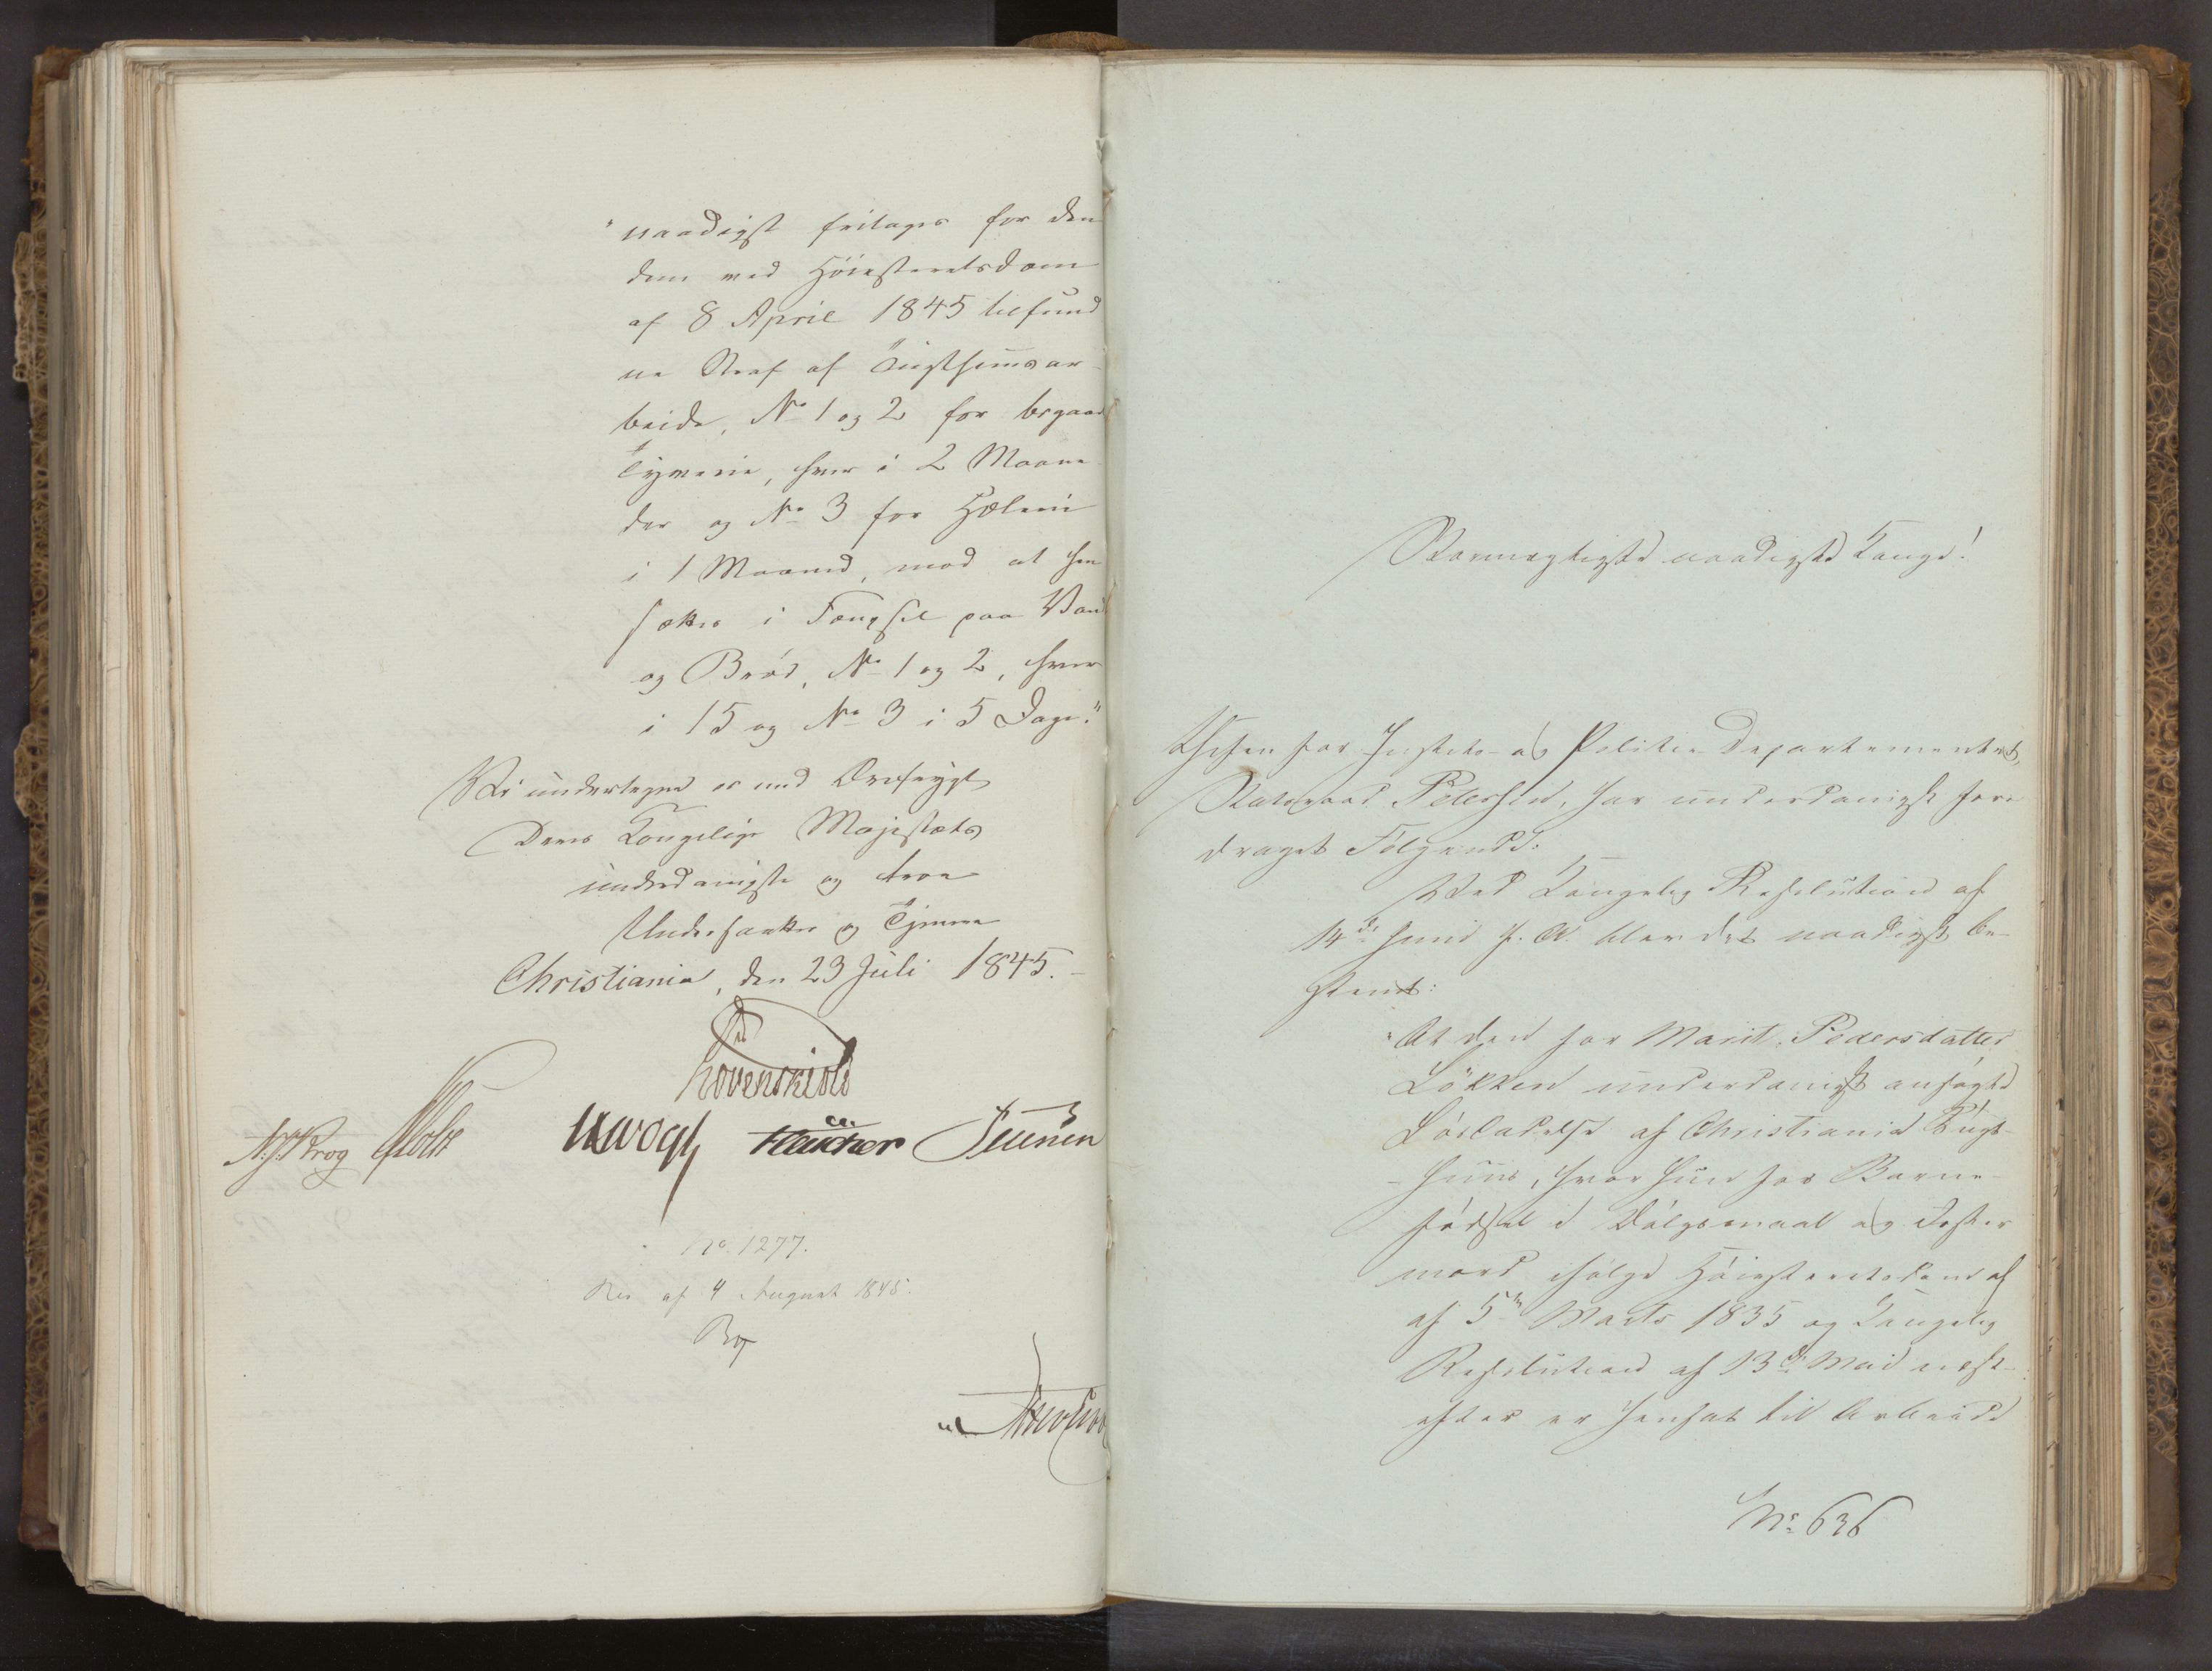 "naadigst fritages for den
dem ved Høiesteretsdom
af 8 April 1845 tilfund
ne Straf af Tugthuusar-
beide, No 1 og 2 for begaaet
Tyverie, hver i 2 Maane
der og No 3 for Hæleri
i 1 Maaned, mod at hen
sættes i Fængsel paa Vand
og Brød, No 1 og 2, hver
i 15 og No 3 i 5 Dage."
Vi undertegne os med Ærefrygt
Deres Kongelige Majestæts
underdanigste og troe
Undersaatter og Tjenere
Christiania, den 23 Juli 1845.-
Løvenskiold
N. J. Krog Holst J H Vogt
No. 1277.
Res af 4 August 1845.
Stormægtigste naadigste Konge!
Chefen for Justits- og Politie-Departementet,
Statsraad Petersen, har underdanigst fore
draget Følgende:
Ved Kongelig Resolution af
14de Juni f. A. blev det naadigst be-
stemt:
"At den for Marit Pedersdatter
Løkken underdanigst ansøgte
Løsladelse af Christiania Tugt-
-huus, hvor hun for Barne-
fødsel i Dølgsmaal og Foster
mord ifølge Høiesteretsdom af
af 5te Marts 1835 og Kongelig
Resolution af 13de Mai næst-
efter er hensat til Arbeide
No. 636